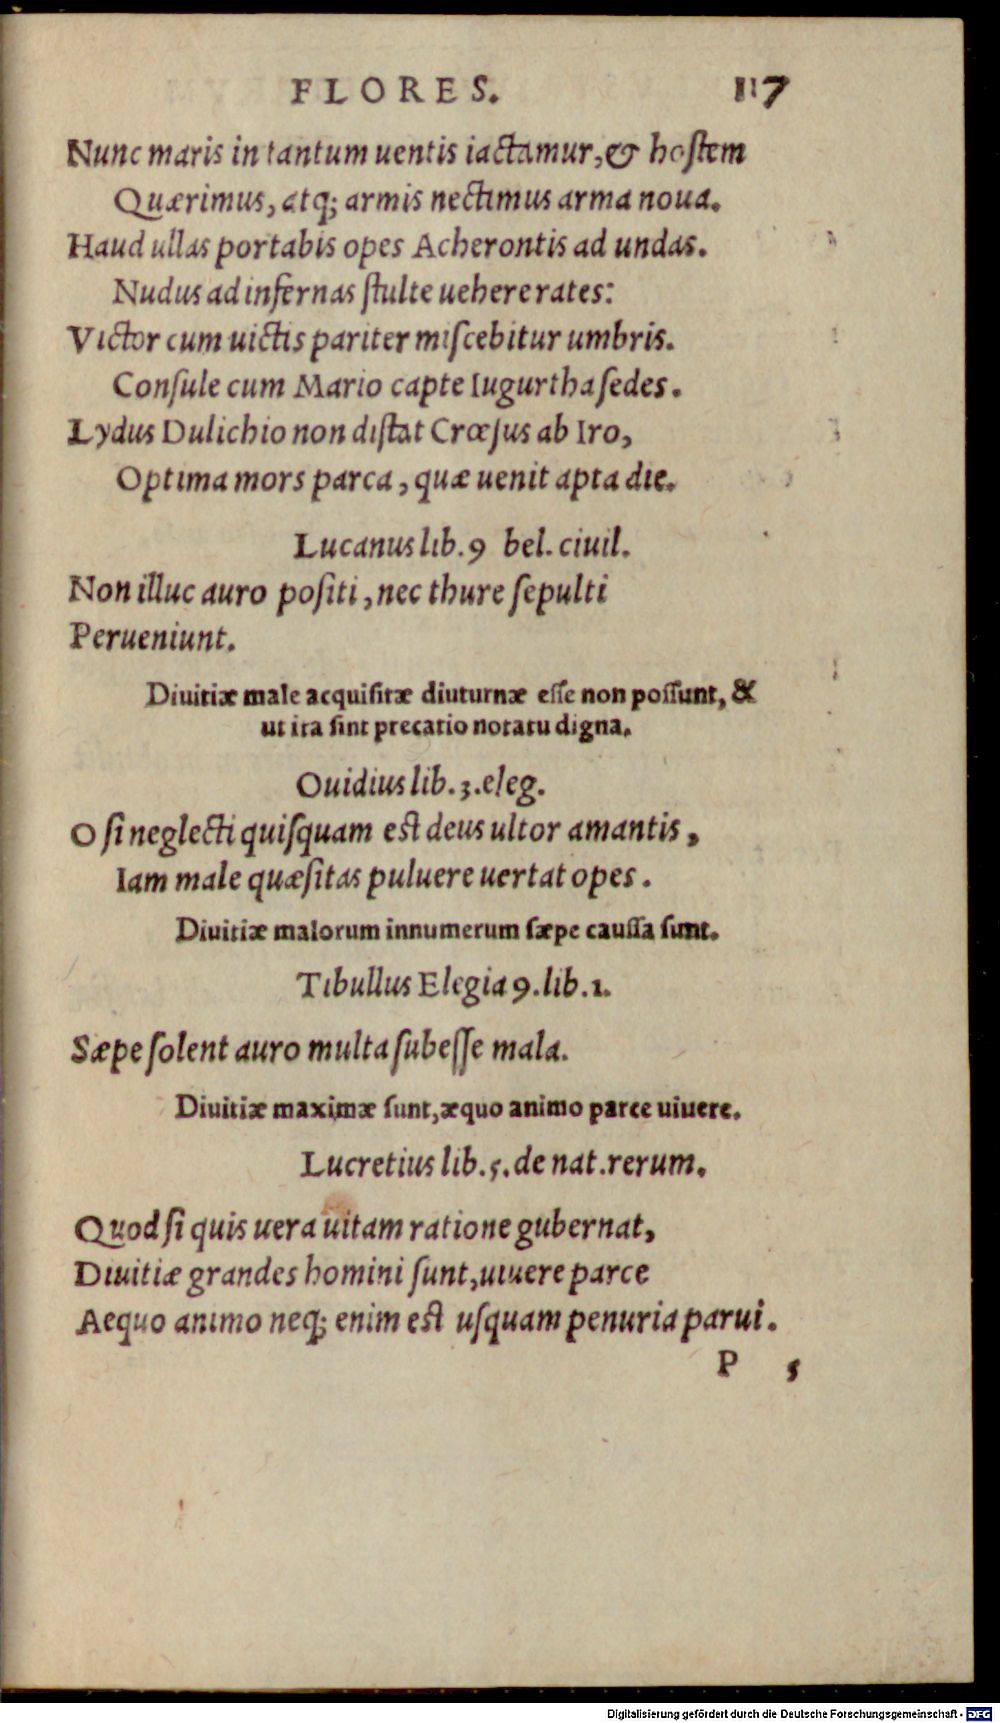 FLORES. 117
Nunc maris in tantum uentis iactamur, & hoſtem
Quærimus, atq; armis nectimus arma noua.
Haud ullas portabis opes Acherontis ad undas.
Nudus ad infernas ſtulte uehere rates:
Victor cum uictis pariter miſcebitur umbris.
Conſule cum Mario capte Iugurtha ſedes.
Lydus Dulichio non diſtat Crœſus ab Iro,
Optima mors parca, quæ uenit apta die.
Lucanus lib. 9 bel. ciuil.
Non illuc auro poſiti, nec thure ſepulti
Perueniunt.
Diuitiæ male acquiſitæ diuturnæ eſſe non poſſunt, &
ut ita ſint precatio notatu digna.
Ouidius lib. 3. eleg.
O ſi neglecti quiſquam eſt deus ultor amantis,
Iam male quæſitas puluere uertat opes.
Diuitiæ malorum innumerum ſæpe cauſſa ſunt.
Tibullus Elegia 9. lib. 1.
Sæpe ſolent auro multa ſubeſſe mala.
Diuitiæ maximæ ſunt, æquo animo parce uiuere.
Lucretius lib. 5. de nat. rerum.
Quod ſi quis uera uitam ratione gubernat,
Diuitiæ grandes homini ſunt, uiuere parce
Aequo animo neq; enim eſt uſquam penuria parui.
P 5
Digitalisierung gefördert durch die Deutsche Forschungsgemeinschaft - DFG